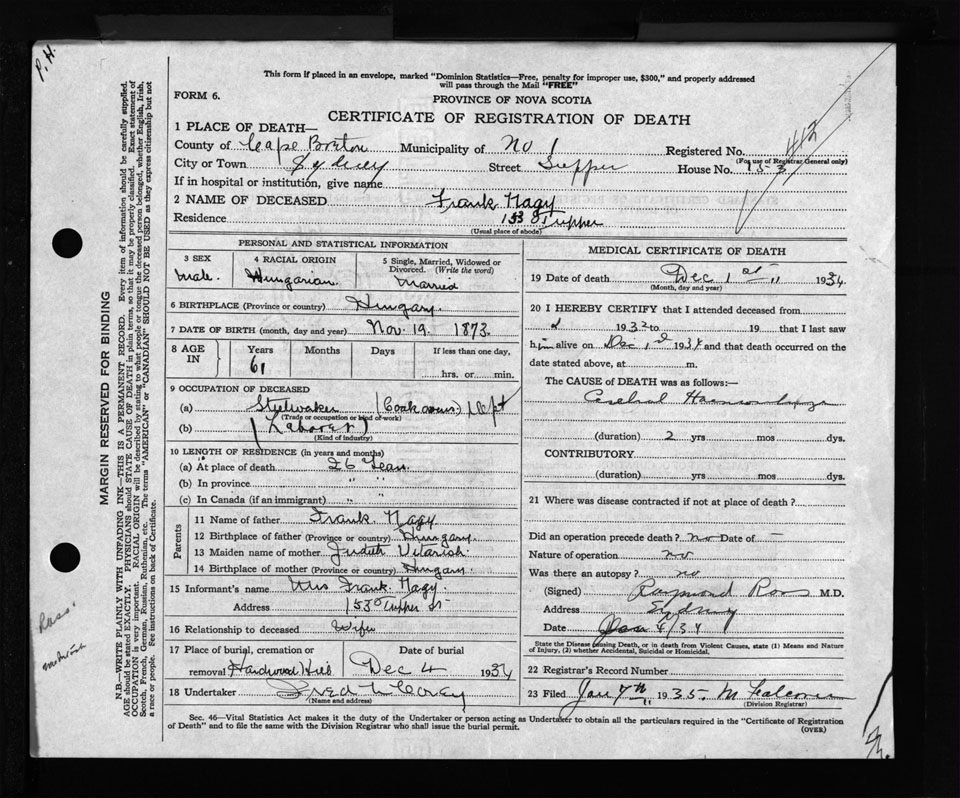 P. H.
This form if placed in an envelope, marked "Dominion Statistics—Free, penalty for improper use, $300," and properly addressed
will pass through the Mail "FREE"
FORM 6.
PROVINCE OF NOVA SCOTIA
CERTIFICATE OF REGISTRATION OF DEATH
412
1 PLACE OF DEATH—
County of Cape Breton Municipality of No 1 Registered No.
(For use of Registrar General only)
City or Town Sydney Street Tupper House No. 153
If in hospital or institution, give name
2 NAME OF DECEASED Frank Nagy
Residence 153 Tupper
(Usual place of abode)
PERSONAL AND STATISTICAL INFORMATION
3 SEX
Male
4 RACIAL ORIGIN
Hungarian
5 Single, Married, Widowed or
Divorced. (Write the word)
Married
6 BIRTHPLACE (Province or country) Hungary.
7 DATE OF BIRTH (month, day and year) Nov. 19. 1873.
8 AGE
IN
Years Months Days If less than one day,
61
hrs. or min.
9 OCCUPATION OF DECEASED
(a) (Coak ovens) Dept
(Trade or occupation or kind of work)
(b) (Laborer)
(Kind of industry)
10 LENGTH OF RESIDENCE (in years and months)
(a) At place of death 26 Years
(b) In province " "
(c) In Canada (if an immigrant) " "
Parents
11 Name of father Frank Nagy.
12 Birthplace of father (Province or country) Hungary.
13 Maiden name of mother Judith
14 Birthplace of mother (Province or country) Hungary
15 Informant's name Mrs Frank Nagy.
Address 153 Tupper St
16 Relationship to deceased Wife
17 Place of burial, cremation or Date of burial
removal Hardwood Hill Dec 4 1934
18 Undertaker Fred
(Name and address)
MEDICAL CERTIFICATE OF DEATH
19 Date of death Dec 1st 1934
(Month, day and year)
20 I HEREBY CERTIFY that I attended deceased from
1932 to 19 that I last saw
him alive on Dec 1st 1934 and that death occurred on the
date stated above, at m.
The CAUSE of DEATH was as follows:—
Cerebral Haemorrhage
(duration) 2 yrs mos dys.
CONTRIBUTORY
(duration) yrs mos dys.
21 Where was disease contracted if not at place of death?
Did an operation precede death? no Date of —
Nature of operation no
Was there an autopsy? no
(Signed) Raymond Ross M.D.
Address Sydney
Date 4/34
State the Disease causing Death, or in death from Violent Causes, state (1) Means and Nature
of Injury, (2) whether Accidental, Suicidal or Homicidal.
22 Registrar's Record Number
23 Filed Jan 7th 1935
(Division Registrar)
Sec. 46—Vital Statistics Act makes it the duty of the Undertaker or person acting as Undertaker to obtain all the particulars required in the "Certificate of Registration
of Death" and to file the same with the Division Registrar who shall issue the burial permit.
(OVER)
MARGIN RESERVED FOR BINDING
N.B.—WRITE PLAINLY WITH UNFADING INK—THIS IS A PERMANENT RECORD. Every item of information should be carefully supplied.
AGE should be stated EXACTLY. PHYSICIANS should STATE CAUSE OF DEATH in plain terms, so that it may be properly classified. Exact statement of
OCCUPATION is very important. RACIAL ORIGIN will be described by stating to what people or tongue the deceased person belonged, whether English, Irish,
Scotch, French, German, Russian, Ruthenian, etc. The terms "AMERICAN" or "CANADIAN" SHOULD NOT BE USED as they express citizenship but not
a race or people. See instructions on back of Certificate.